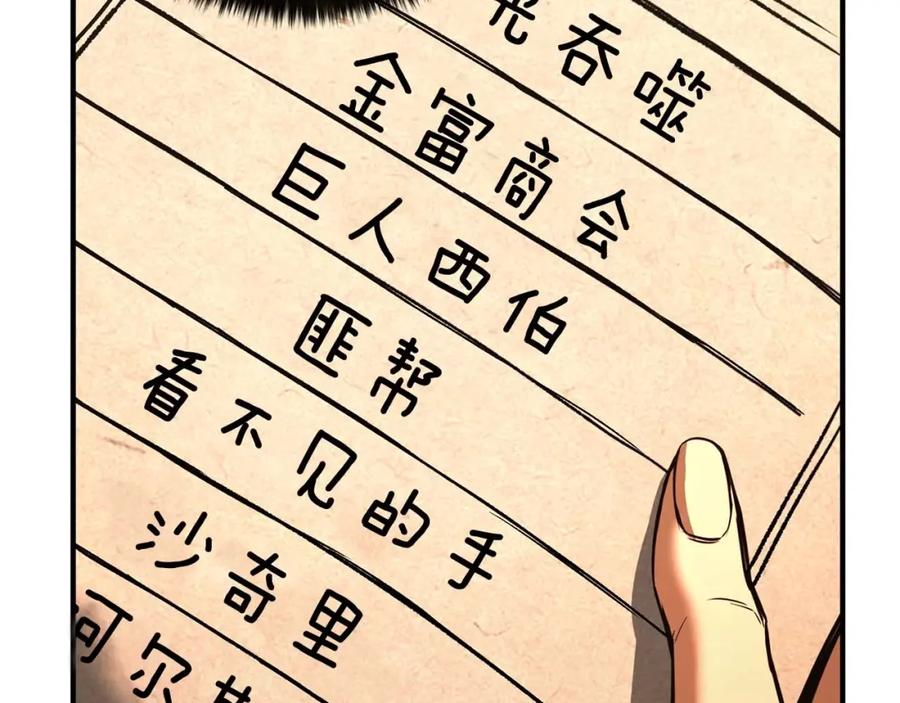 吞噬
金富商会
巨人西伯
匪帮
看不见的手
沙奇里
阿尔